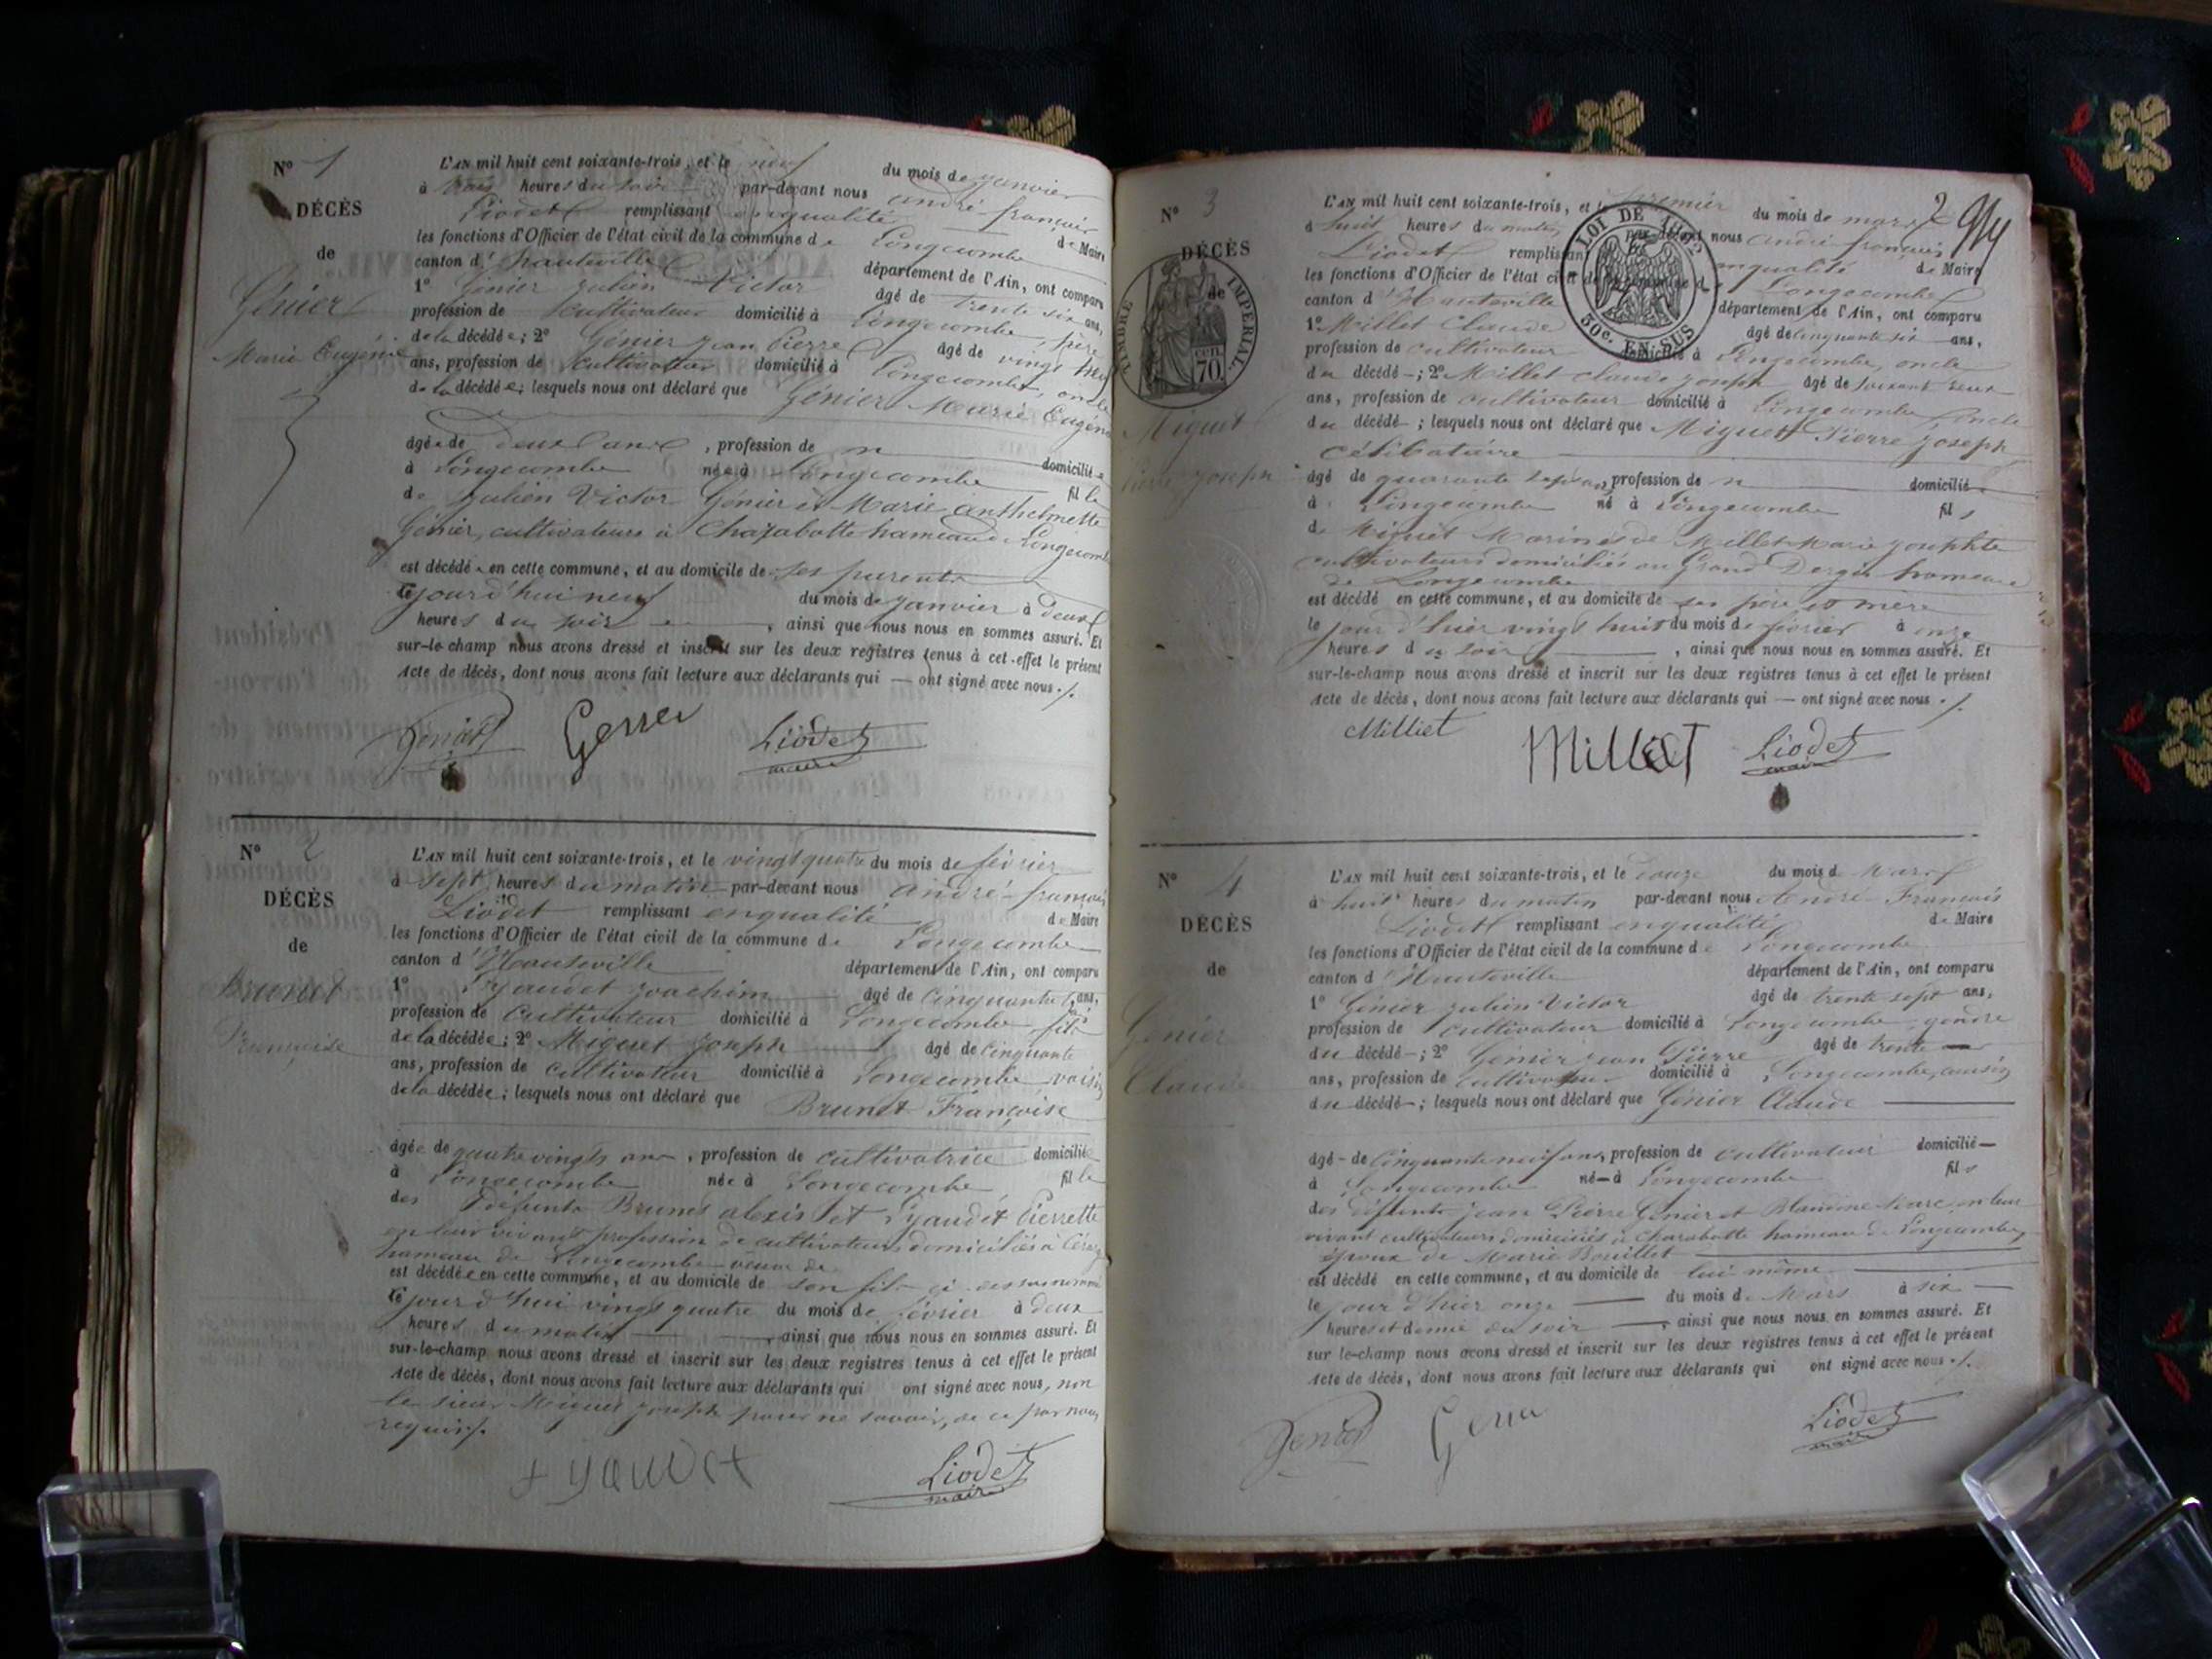 N° 1
DÉCÈS
de
Génier
Marie Eugénie
L'AN mil huit cent soixante-trois, et le neuf du mois de janvier
à trois heures du soir par-devant nous andré-françois
Liodet remplissant enqualité de Maire
les fonctions d'Officier de l'état civil de la commune de Longecombe
canton d'hauteville département de l'Ain, ont comparu
1° Génier julien Victor âgé de trente six ans,
profession de cultivateur domicilié à Longecombe, père
de la décédée; 2° Génier jean Pierre âgé de vingt neuf
ans, profession de cultivateur domicilié à Longecombe, oncle
de la décédée; lesquels nous ont déclaré que Génier Marie Eugénie
âgée de deux ans, profession de domiciliée
à Longecombe née à Longecombe fille
de julien Victor Génier et Marie anthelmette
Génier, cultivateurs à Charabotte hameau de Longecombe
est décédée en cette commune, et au domicile de ses parents
le jourd'hui neuf du mois de janvier à deux
heures du soir, ainsi que nous nous en sommes assuré. Et
sur-le-champ nous avons dressé et inscrit sur les deux registres tenus à cet effet le présent
Acte de décès, dont nous avons fait lecture aux déclarants qui — ont signé avec nous ./.
Liodet
maire
N° 2
DÉCÈS
de
Brunet
Françoise
L'AN mil huit cent soixante-trois, et le vingt quatre du mois de février
à sept heures du matin par-devant nous andré-françois
Liodet remplissant enqualité de Maire
les fonctions d'Officier de l'état civil de la commune de Longecombe
canton d'Hauteville département de l'Ain, ont comparu
1° Lyaudet joachim âgé de cinquante ans,
profession de cultivateur domicilié à Longecombe fils
de la décédée; 2° Miguet joseph âgé de cinquante
ans, profession de cultivateur domicilié à Longecombe voisin
de la décédée; lesquels nous ont déclaré que Brunet Françoise
âgée de quatre vingts ans, profession de cultivatrice domiciliée
à Longecombe née à Longecombe fille
des défunts Brunet alexis et Lyaudet Pierrette
en leur vivant profession de cultivateurs domiciliés à
hameau de Longecombe veuve de
est décédée en cette commune, et au domicile de son fils ci-dessus nommé
le jourd'hui vingt quatre du mois de février à deux
heures du matin, ainsi que nous nous en sommes assuré. Et
sur-le-champ nous avons dressé et inscrit sur les deux registres tenus à cet effet le présent
Acte de décès, dont nous avons fait lecture aux déclarants qui ont signé avec nous, non
le sieur Miguet joseph pour ne savoir, de ce par nous
requis ./.
Lyaudet Liodet
maire
N° 3
DÉCÈS
de
TIMBRE IMPÉRIAL
70 CEN.
Miguet
Pierre joseph
LOI DE
50c. EN SUS
L'AN mil huit cent soixante-trois, et le premier du mois de mars
à huit heures du matin par-devant nous andré françois
Liodet remplissant enqualité de Maire
les fonctions d'Officier de l'état civil de la commune de Longecombe
canton d'Hauteville département de l'Ain, ont comparu
1° Millet Claude âgé de cinquante six ans,
profession de cultivateur domicilié à Longecombe, oncle
du décédé; 2° Millet Claude joseph âgé de
ans, profession de cultivateur domicilié à Longecombe, oncle
du décédé; lesquels nous ont déclaré que Miguet Pierre joseph
célibataire
âgé de quarante sept ans, profession de domicilié
à Longecombe né à Longecombe fils
de Miguet Marin et de Millet Marie josephte
cultivateurs domiciliés au Grand Dergis hameau
de Longecombe
est décédé en cette commune, et au domicile de ses père et mère
le jour d'hier vingt huit du mois de février à onze
heures du soir, ainsi que nous nous en sommes assuré. Et
sur-le-champ nous avons dressé et inscrit sur les deux registres tenus à cet effet le présent
Acte de décès, dont nous avons fait lecture aux déclarants qui — ont signé avec nous ./.
Milliet Millet Liodet
maire
N° 4
DÉCÈS
de
Génier
Claude
L'AN mil huit cent soixante-trois, et le douze du mois de Mars
à huit heures du matin par-devant nous André-François
Liodet remplissant enqualité de Maire
les fonctions d'Officier de l'état civil de la commune de Longecombe
canton d'Hauteville département de l'Ain, ont comparu
1° Génier julien Victor âgé de trente sept ans,
profession de cultivateur domicilié à Longecombe, gendre
du décédé; 2° Génier jean Pierre âgé de trente
ans, profession de cultivateur domicilié à Longecombe, cousin
du décédé; lesquels nous ont déclaré que Génier Claude
âgé de cinquante neuf ans, profession de cultivateur domicilié
à Longecombe né à Longecombe fils
des défunts jean Pierre Génier et en leur
vivant cultivateurs domiciliés à Charabotte hameau de Longecombe,
époux de Marie Bouillet
est décédé en cette commune, et au domicile de lui même
le jour d'hier onze du mois de Mars à six
heures et demie du soir, ainsi que nous nous en sommes assuré. Et
sur le-champ nous avons dressé et inscrit sur les deux registres tenus à cet effet le présent
Acte de décès, dont nous avons fait lecture aux déclarants qui ont signé avec nous ./.
Liodet
maire